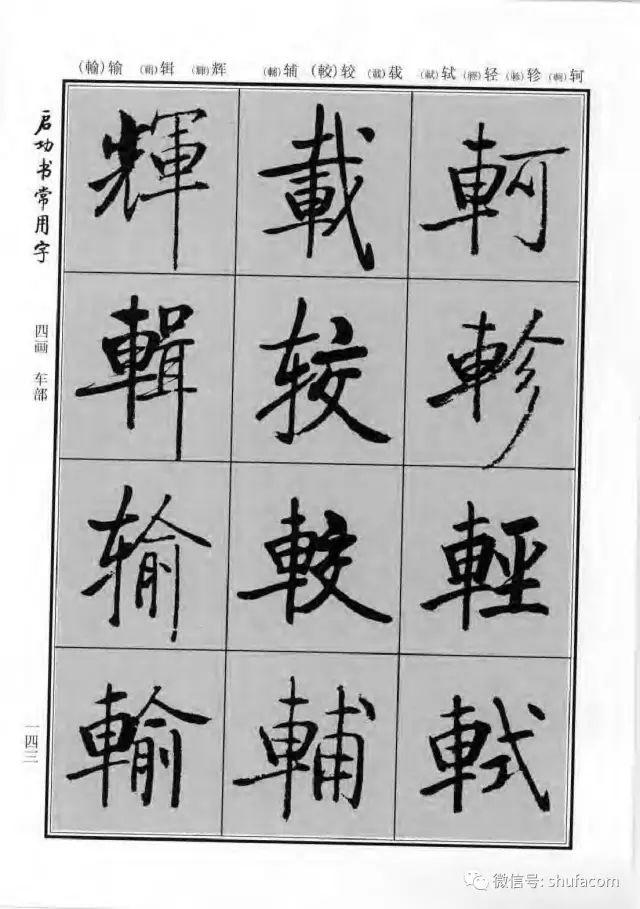 (輸)输 (輯)辑 (輝)辉 (輔)辅 (較)较 (載)载 (軾)轼 (輕)轻 (軫)轸 (軻)轲
启功书常用字
四画 车部
一四三
軻
軫
輕
軾
載
较
較
輔
輝
輯
输
輸
微信号: shufacom